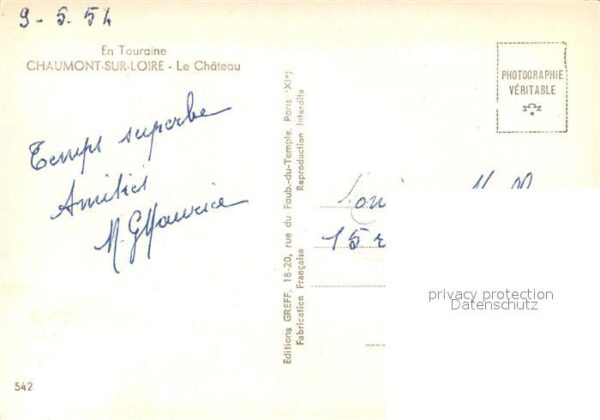 9-5.54
En Touraine
CHAUMONT-SUR-LOIRE - Le Château
Temps superbe
Amitiés
Editions GREFF, 18-20, rue du Faub.-du-Temple, Paris (XIe)
Fabrication Française Reproduction Interdite
PHOTOGRAPHIE
VÉRITABLE
15 r
privacy protection
Datenschutz
542